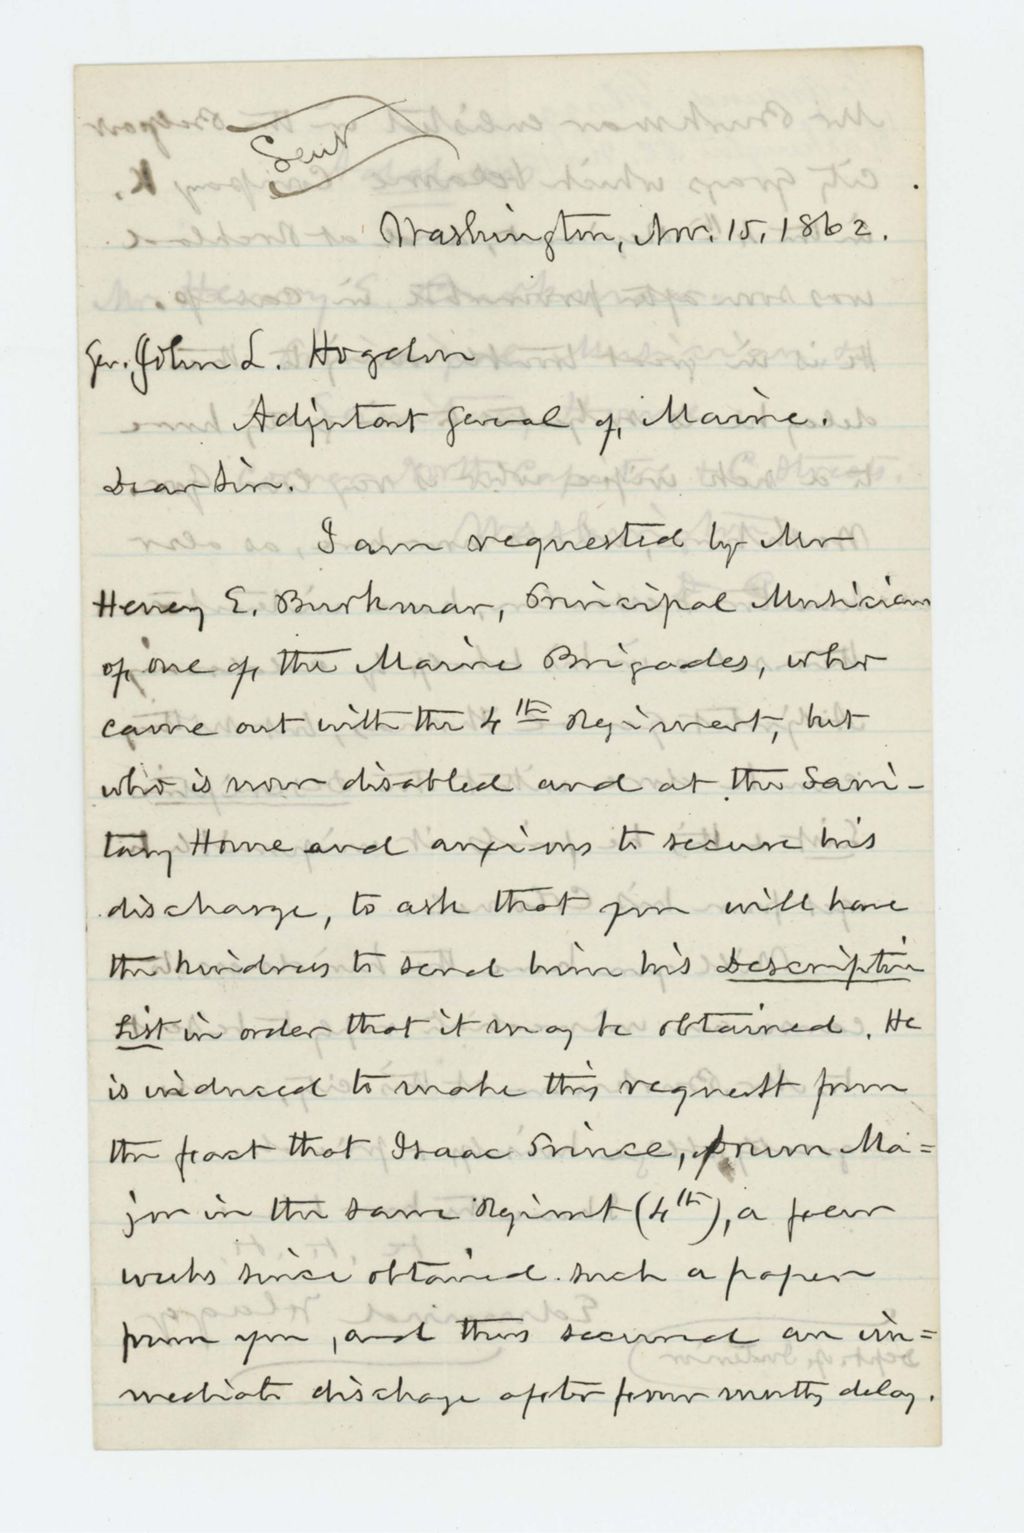 Sent
Washington, Nov. 15, 1862.
Gen. John L. Hogdon
Adjutant General of Maine.
Dear Sir.
I am requested by Mr
Henry E. Burkmar, Principal Musician
of one of the Maine Brigades, who
came out with the 4th Regiment, but
who is now disabled and at the Sani-
tary Home and anxious to secure his
discharge, to ask that you will have
the kindness to send him his Descriptive
List in order that it may be obtained. He
is induced to make this request from
the fact that Isaac Prince, Drum Ma=
jor in the same Regiment (4th), a few
weeks since obtained such a paper
from you, and thus secured an im=
mediate discharge after four months delay.